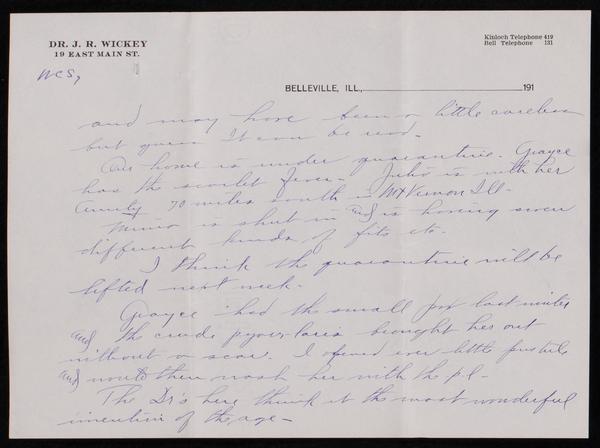 DR. J. R. WICKEY
19 EAST MAIN ST.
Kinloch Telephone 419
Bell Telephone 131
WCS,
BELLEVILLE, ILL., 191
and may have been a little careless
but guess it can be read.
Our home is under quarantine. Grayce
has the scarlet fever. Julia is with her
Aunty 70 miles south - Mt Vernon Ill-
is shut in and is having seven
different kinds of fits etc.
I think the quarantine will be
lifted next week.
Grayce had the small pox last winter
and the crude brought her out
without a scar. I opened ever little pustule
and then wash her with the p.l-
The Dr's here think it the most wonderful
invention of the age-